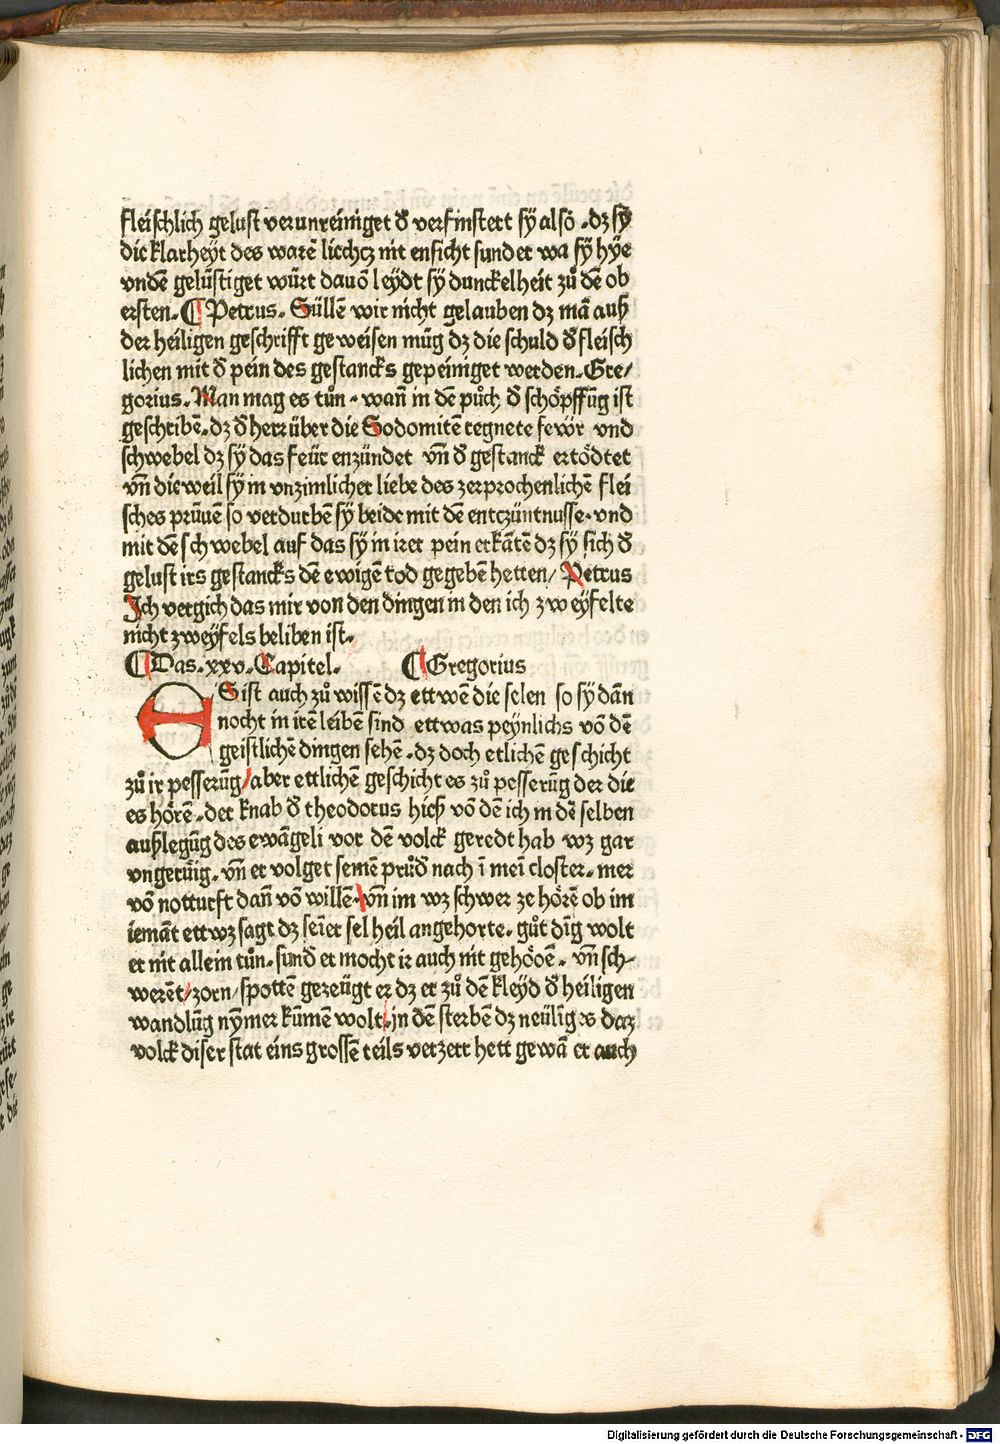 fleischlich gelust verunreiniget đ verfinstert sÿ alsō .dz sÿ
die klarheÿt des warē liechcz nit ensicht sunder wa sÿ hÿe
vndē gelüstiget würt dauō leÿdt sÿ dunckelheit zů dē ob
ersten. ¶ Petrus. Süllē wir nicht gelauben dz mā auß
der heiligen geschrifft geweisen müg dz die schuld đ fleisch
lichen mit đ pein des gestancks gepeiniget werden. Gre/
gorius. Man mag es tůn . wañ in dē půch đ schöpffūg ist
geschribē. dz đ herr über die Sodomitē regnete fewr vnd
schwebel dz sÿ das feür enzündet vñ đ gestanck ertödtet
vñ dieweil sÿ in vnzimlicher liebe des zerprochenlichē flei
sches prüuē so verdurbē sÿ beide mit dē entczüntnusse. vnd
mit dē schwebel auf das sÿ in irer pein erkātē dz sÿ sich đ
gelust irs gestancks dē ewigē tod gegebē hetten/ Petrus
Ich vergich das mir von den dingen in den ich zweÿfelte
nicht zweÿfels beliben ist.
¶ Das .xxv. Capitel. ¶ Gregorius
ES ist auch zů wissē dz ettwē die selen so sÿ dān
nocht in irē leiben sind ettwas peÿnlichs vō dē
geistlichē dingen sehē . dz doch etlichē geschicht
zů ir pesserūg/ aber ettlichē geschicht es zů pesserūg der die
es hörē . der knab đ theodorus hieß vō dē ich in dē selben
außlegūg des ewāgeli vor dē volck geredt hab wz gar
vngerüig. vñ er volget seinē průđ nach ī mei closter. mer
vō notturft dañ vō willē. vñ im wz schwer ze hörē ob im
iemāt ettwz sagt dz seīer sel heil angehorte. gůt dīg wolt
er nit allein tůn. sunđ er mocht ir auch nit gehöoē . vñ sch-
werēt/ zorn/ spottē gezeügt er dz er zů dē kleÿd đ heiligen
wandlūg nÿmer kūmē wolt. in dē sterbē dz neüliges daz
volck diser stat eins grossē teils verzert hett gewā er auch
Digitalisierung gefördert durch die Deutsche Forschungsgemeinschaft - DFG